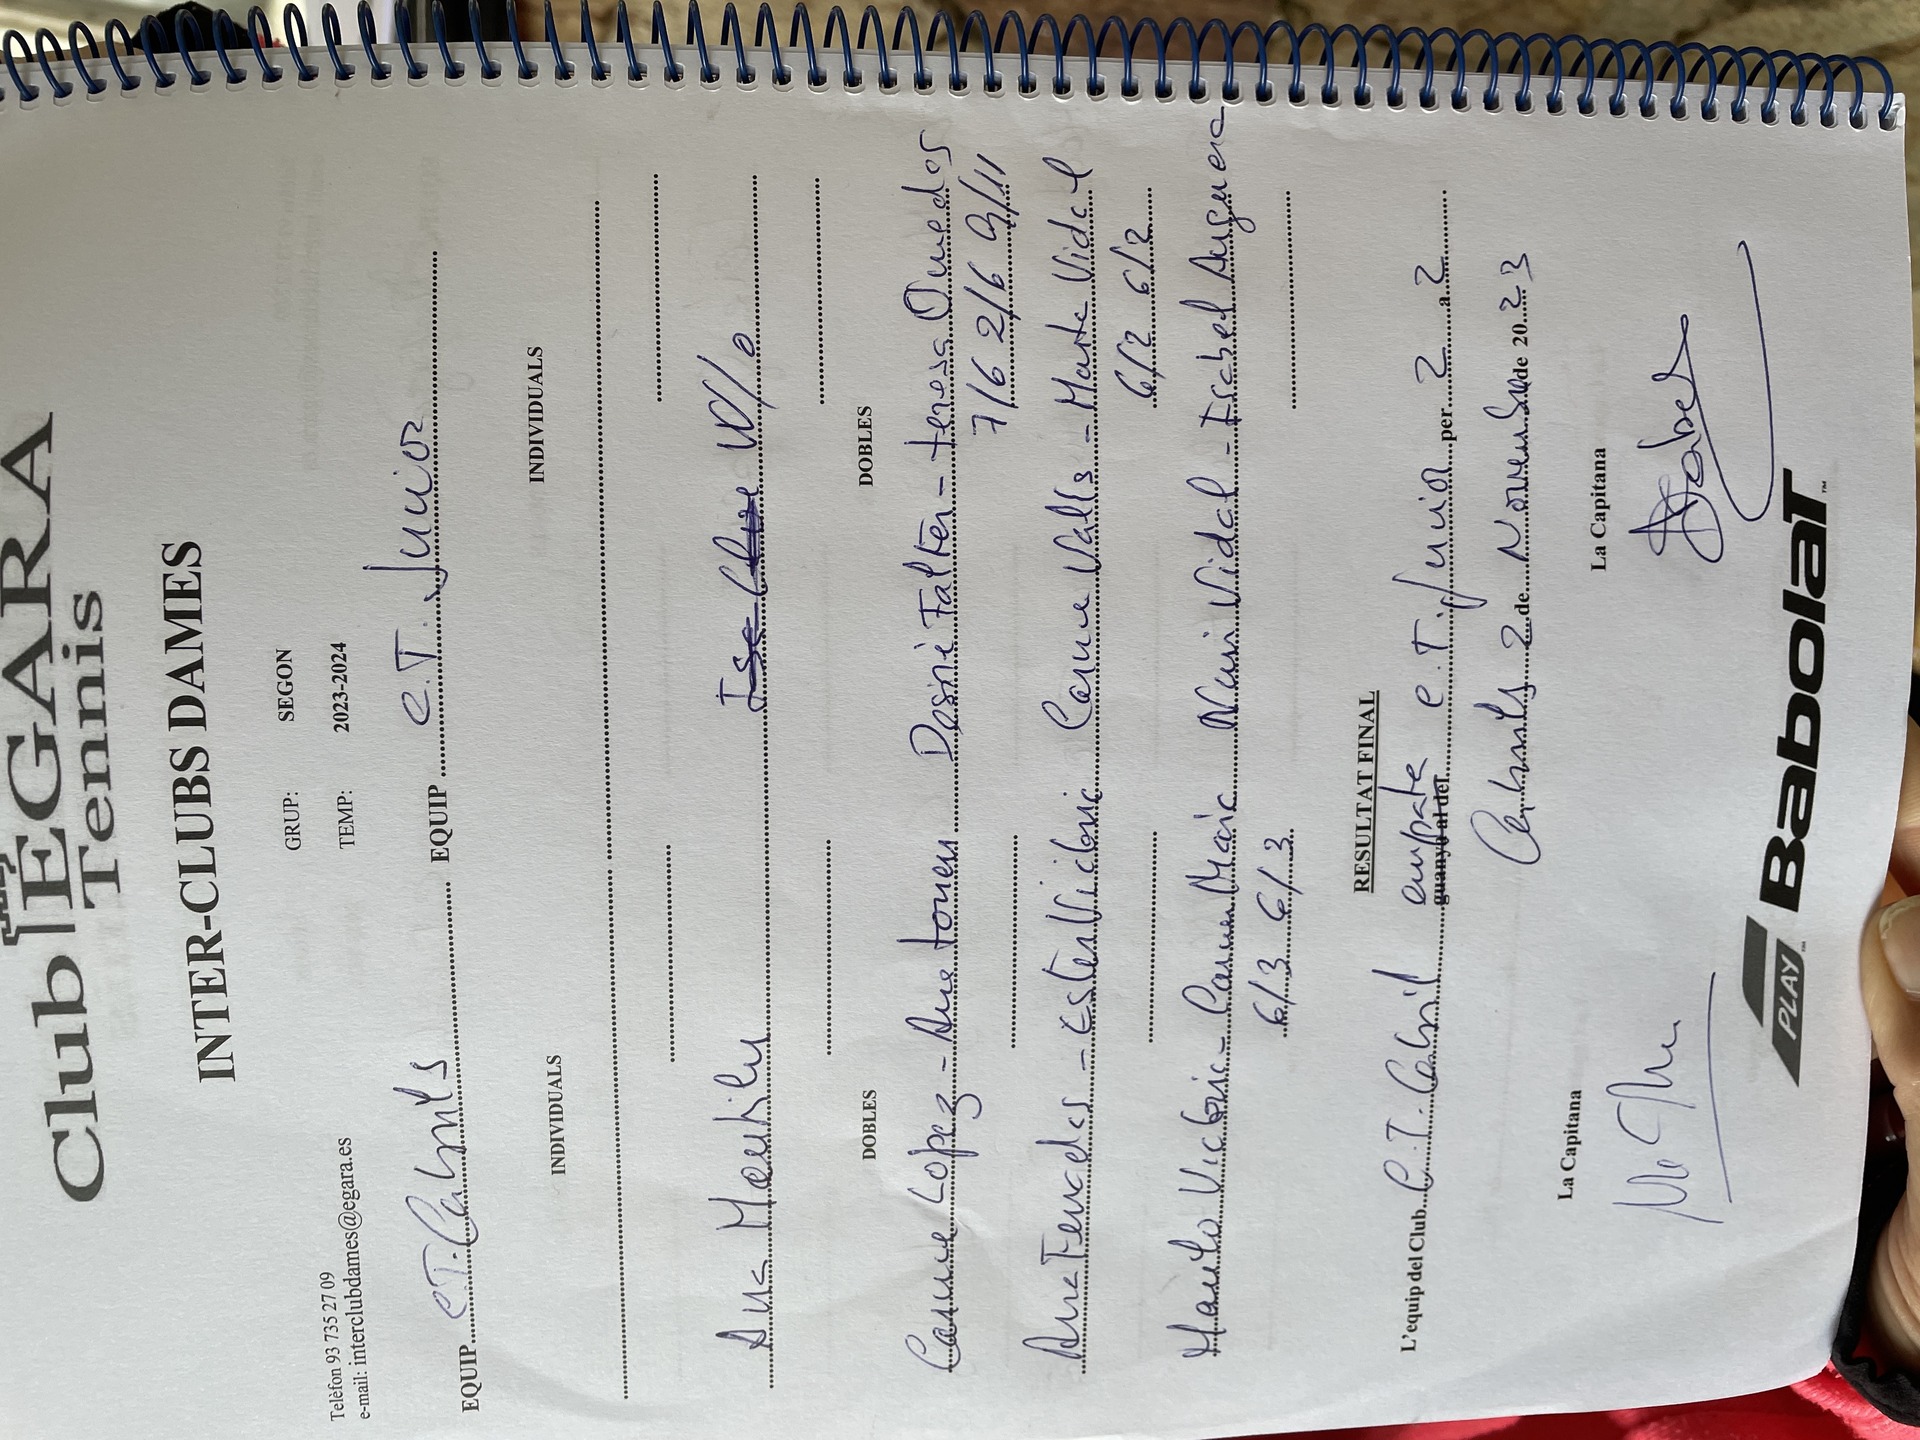 Club EGARA
Tennis
INTER-CLUBS DAMES
GRUP: SEGON
Telèfon 93 735 27 09
e-mail: interclubdames@egara.es
TEMP: 2023-2024
EQUIP C.T. Cabrils EQUIP C.T. Junior
INDIVIDUALS INDIVIDUALS
Ana W/o
DOBLES DOBLES
Carme Lopez - Ana Desiri Falken - teresa
7/6 2/6 9/11
Ana - Ester Victoria Carme Valls - Marta Vidal
6/2 6/2
Victoria - Carmen Maria Nuri Vidal - Isabel Auguera
6/3 6/3
RESULTAT FINAL
L'equip del Club C.T. Cabril empate guanyà al del C.T. Junior per 2 a 2
Cabrils 2 de Novembre de 20 23
La Capitana La Capitana
PLAY Babolat™